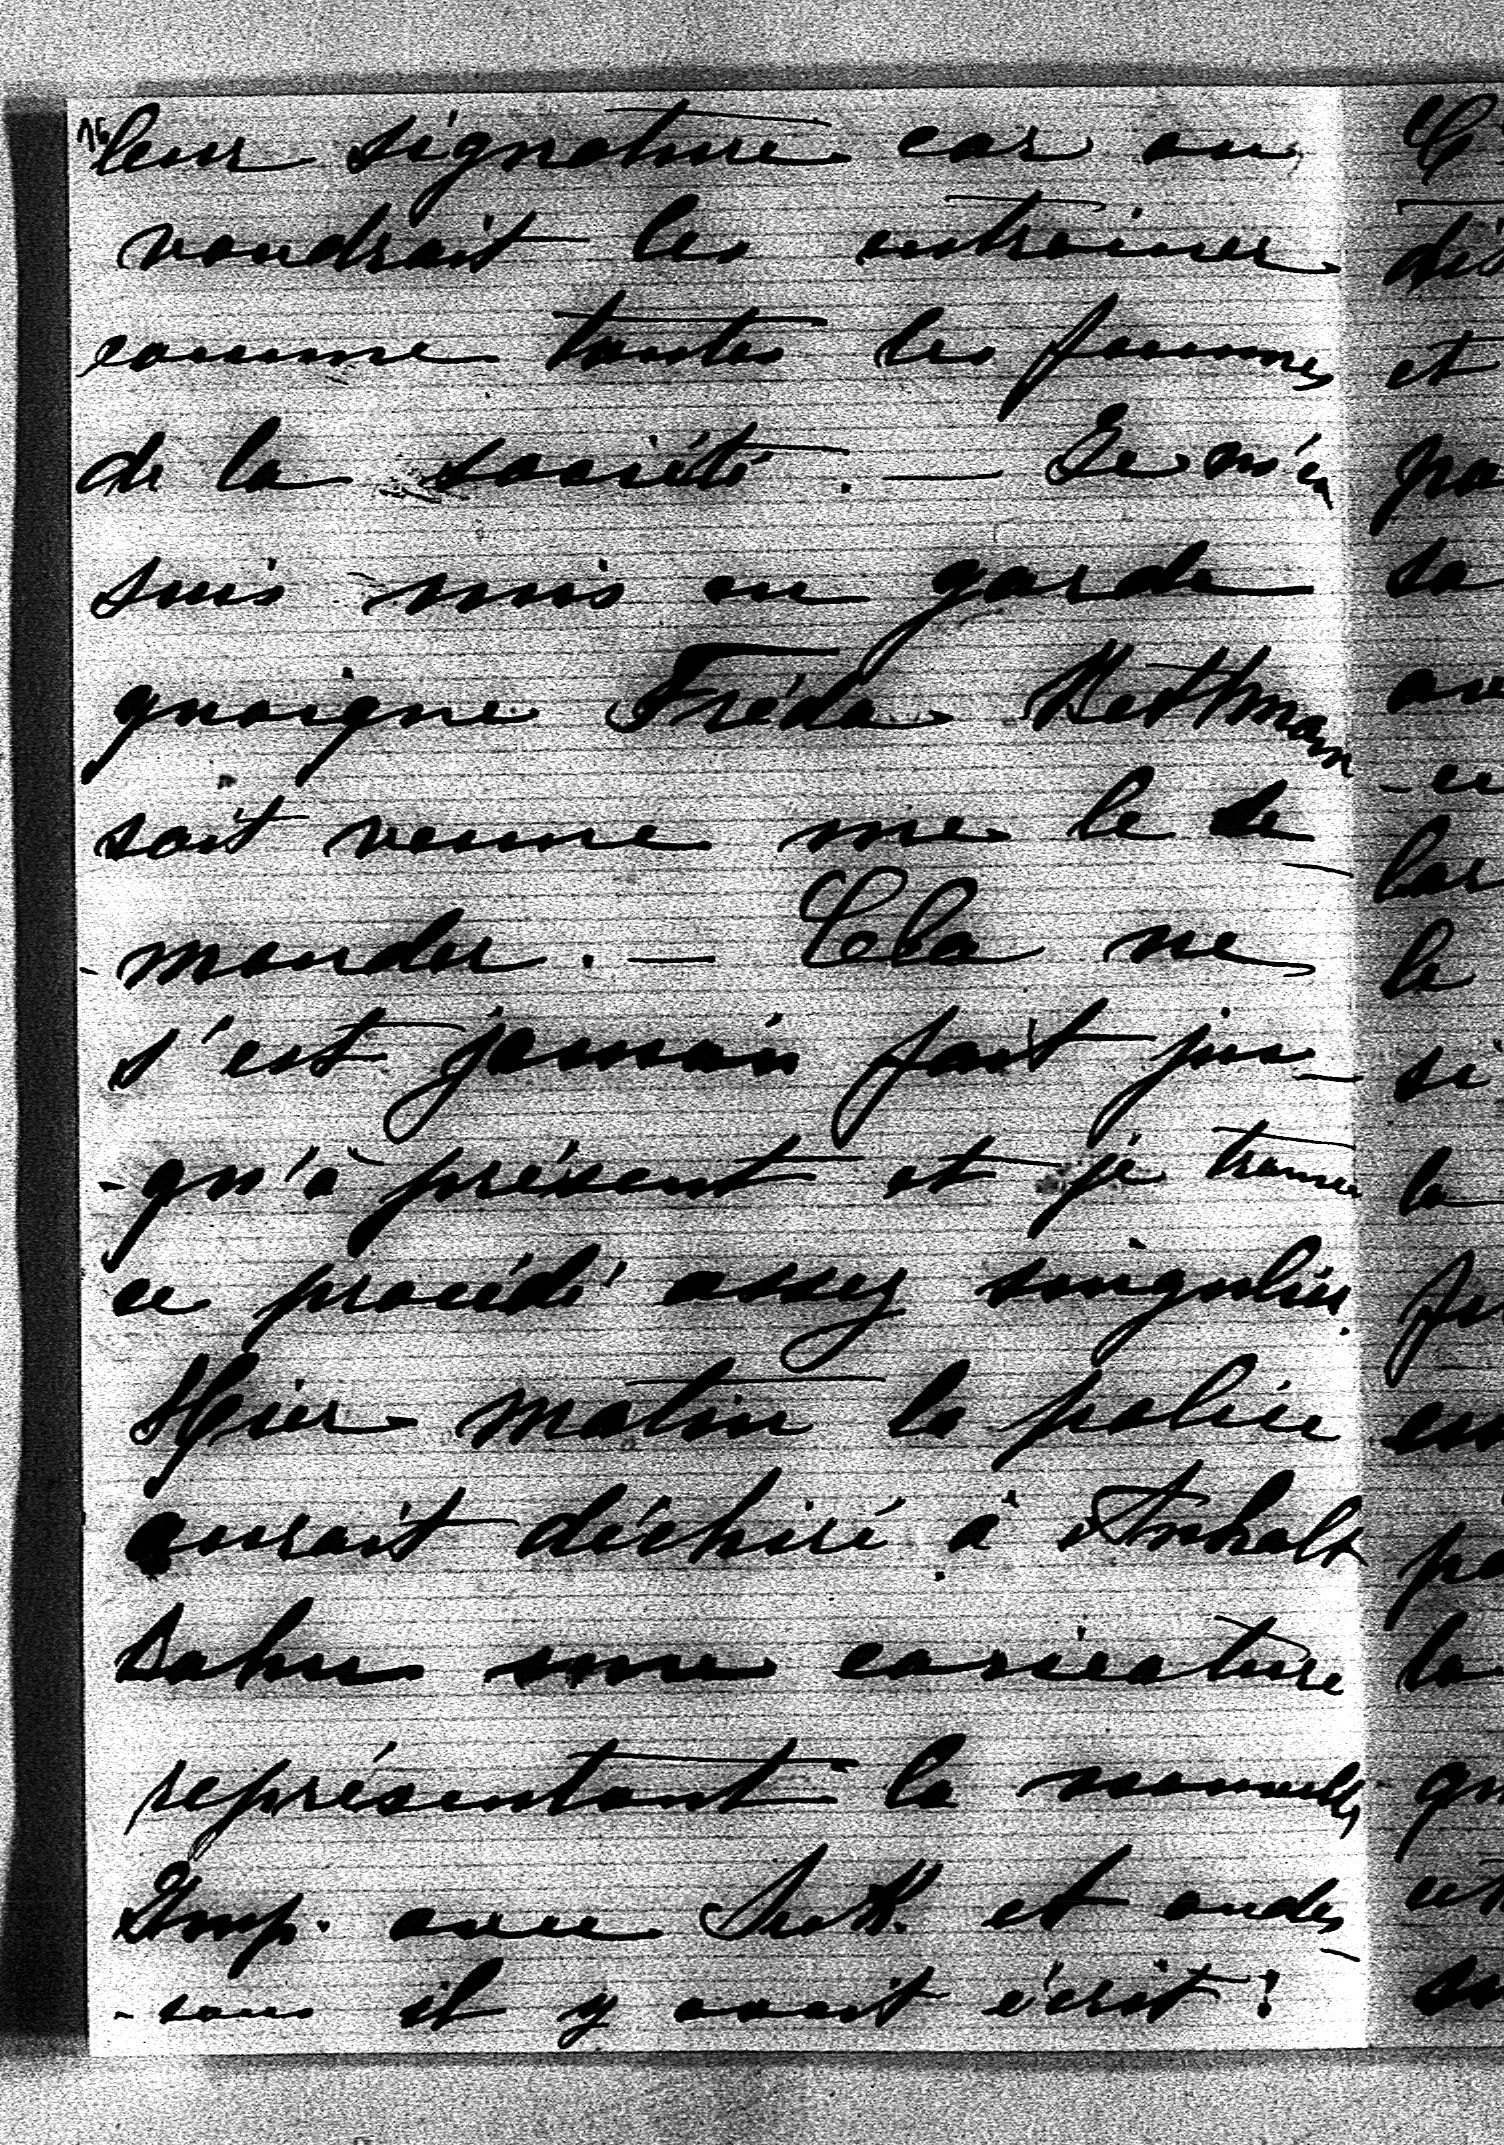 15
leur signature car on
voudrait les entrainer
comme toutes les femmes
de la société. — Je m'en
suis mis en garde
quoique Fréda
soit venue me le de-
-mander. — Cela ne
s'est jamais fait jus-
-qu'à présent et je trouve
ce procédé assez singulier.
Hier matin la police
aurait déchiré à Anhalt
Bahn une caricature
représentant la nouvelle
Imp. avec et audes-
-sous il y avait écrit!